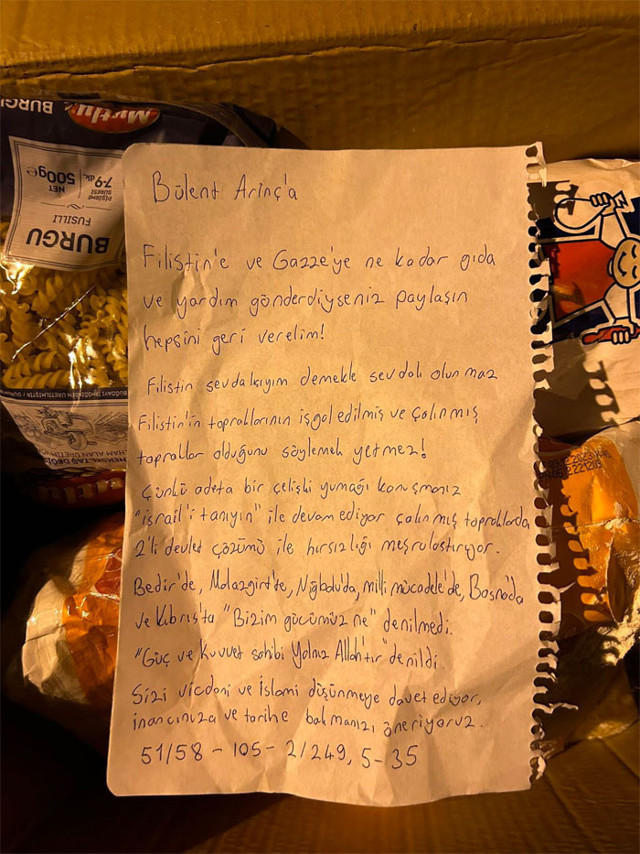 Mutlu
BURGU
FUSILLI
BURGU
NET
500g e
PİŞİRME
SÜRESİ
7-9 dk.
Bülent Arınç'a
Filistin'e ve Gazze'ye ne kadar gıda
ve yardım gönderdiyseniz paylaşın
hepsini geri verelim!
Filistin sevdalıyım demekle sevdalı olunmaz
Filistin'in topraklarının işgal edilmiş ve çalınmış
topraklar olduğunu söylemek yetmez!
Çünkü adeta bir çelişki yumağı konuşmanız
"israil'i tanıyın" ile devam ediyor çalınmış topraklarda
2'li devlet çözümü ile hırsızlığı meşrulaştırıyor.
Bedir'de, Malazgirt'te, Niğbolu'da, milli mücadele'de, Bosna'da
ve Kıbrıs'ta "Bizim gücümüz ne" denilmedi.
"Güç ve Kuvvet sahibi Yalnız Allah'tır" denildi.
Sizi vicdani ve İslami düşünmeye davet ediyor,
inancınıza ve tarihe bakmanızı öneriyoruz.
51/58 - 105 - 2/249, 5-35